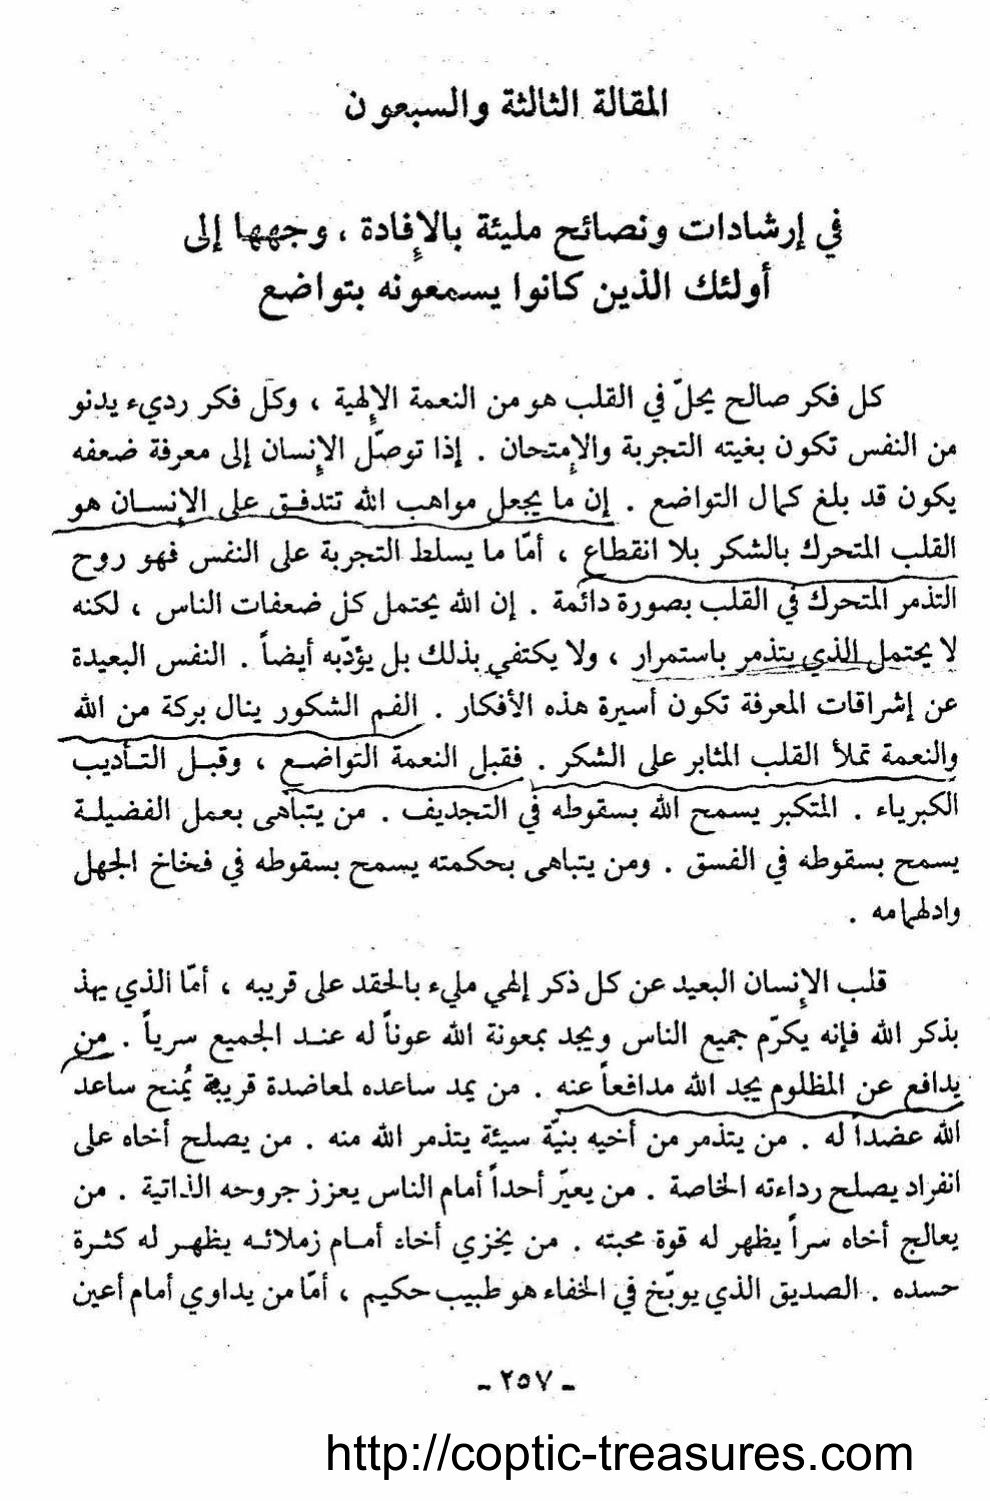 المقالة الثالثة والسبعون
في إرشادات ونصائح مليئة بالإفادة ، وجهها إلى
أولئك الذين كانوا يسمعونه بتواضع
كل فكر صالح يحلّ في القلب هو من النعمة الإلهية ، وكل فكر رديء يدنو
من النفس تكون بغيته التجربة والإمتحان . إذا توصّل الإنسان إلى معرفة ضعفه
يكون قد بلغ كمال التواضع . إن ما يجعل مواهب الله تتدفق على الإنسان هو
القلب المتحرك بالشكر بلا انقطاع ، أمّا ما يسلط التجربة على النفس فهو روح
التذمر المتحرك في القلب بصورة دائمة . إن الله يحتمل كل ضعفات الناس ، لكنه
لا يحتمل الذي يتذمر باستمرار ، ولا يكتفي بذلك بل يؤدّبه أيضاً . النفس البعيدة
عن إشراقات المعرفة تكون أسيرة هذه الأفكار . الفم الشكور ينال بركة من الله
والنعمة تملأ القلب المثابر على الشكر . فقبل النعمة التواضع ، وقبل التأديب
الكبرياء . المتكبر يسمح الله بسقوطه في التجديف . من يتباهى بعمل الفضيلة
يسمح بسقوطه في الفسق . ومن يتباهى بحكمته يسمح بسقوطه في فخاخ الجهل
وادلهمامه .
قلب الإنسان البعيد عن كل ذكر إلهي مليء بالحقد على قريبه ، أمّا الذي يهذ
بذكر الله فإنه يكرّم جميع الناس ويجد بمعونة الله عوناً له عند الجميع سرياً . من
يدافع عن المظلوم يجد الله مدافعاً عنه . من يمد ساعده لمعاضدة قريبة يُمنح ساعد
الله عضداً له . من يتذمر من أخيه بنيّة سيئة يتذمر الله منه . من يصلح أخاه على
انفراد يصلح رداءته الخاصة . من يعيّر أحداً أمام الناس يعزز جروحه الذاتية . من
يعالج أخاه سراً يظهر له قوة محبته . من يخزي أخاه أمام زملائه يظهر له كثرة
حسده . الصديق الذي يوبّخ في الخفاء هو طبيب حكيم ، أمّا من يداوي أمام أعين
- ٢٥٧ -
http://coptic-treasures.com